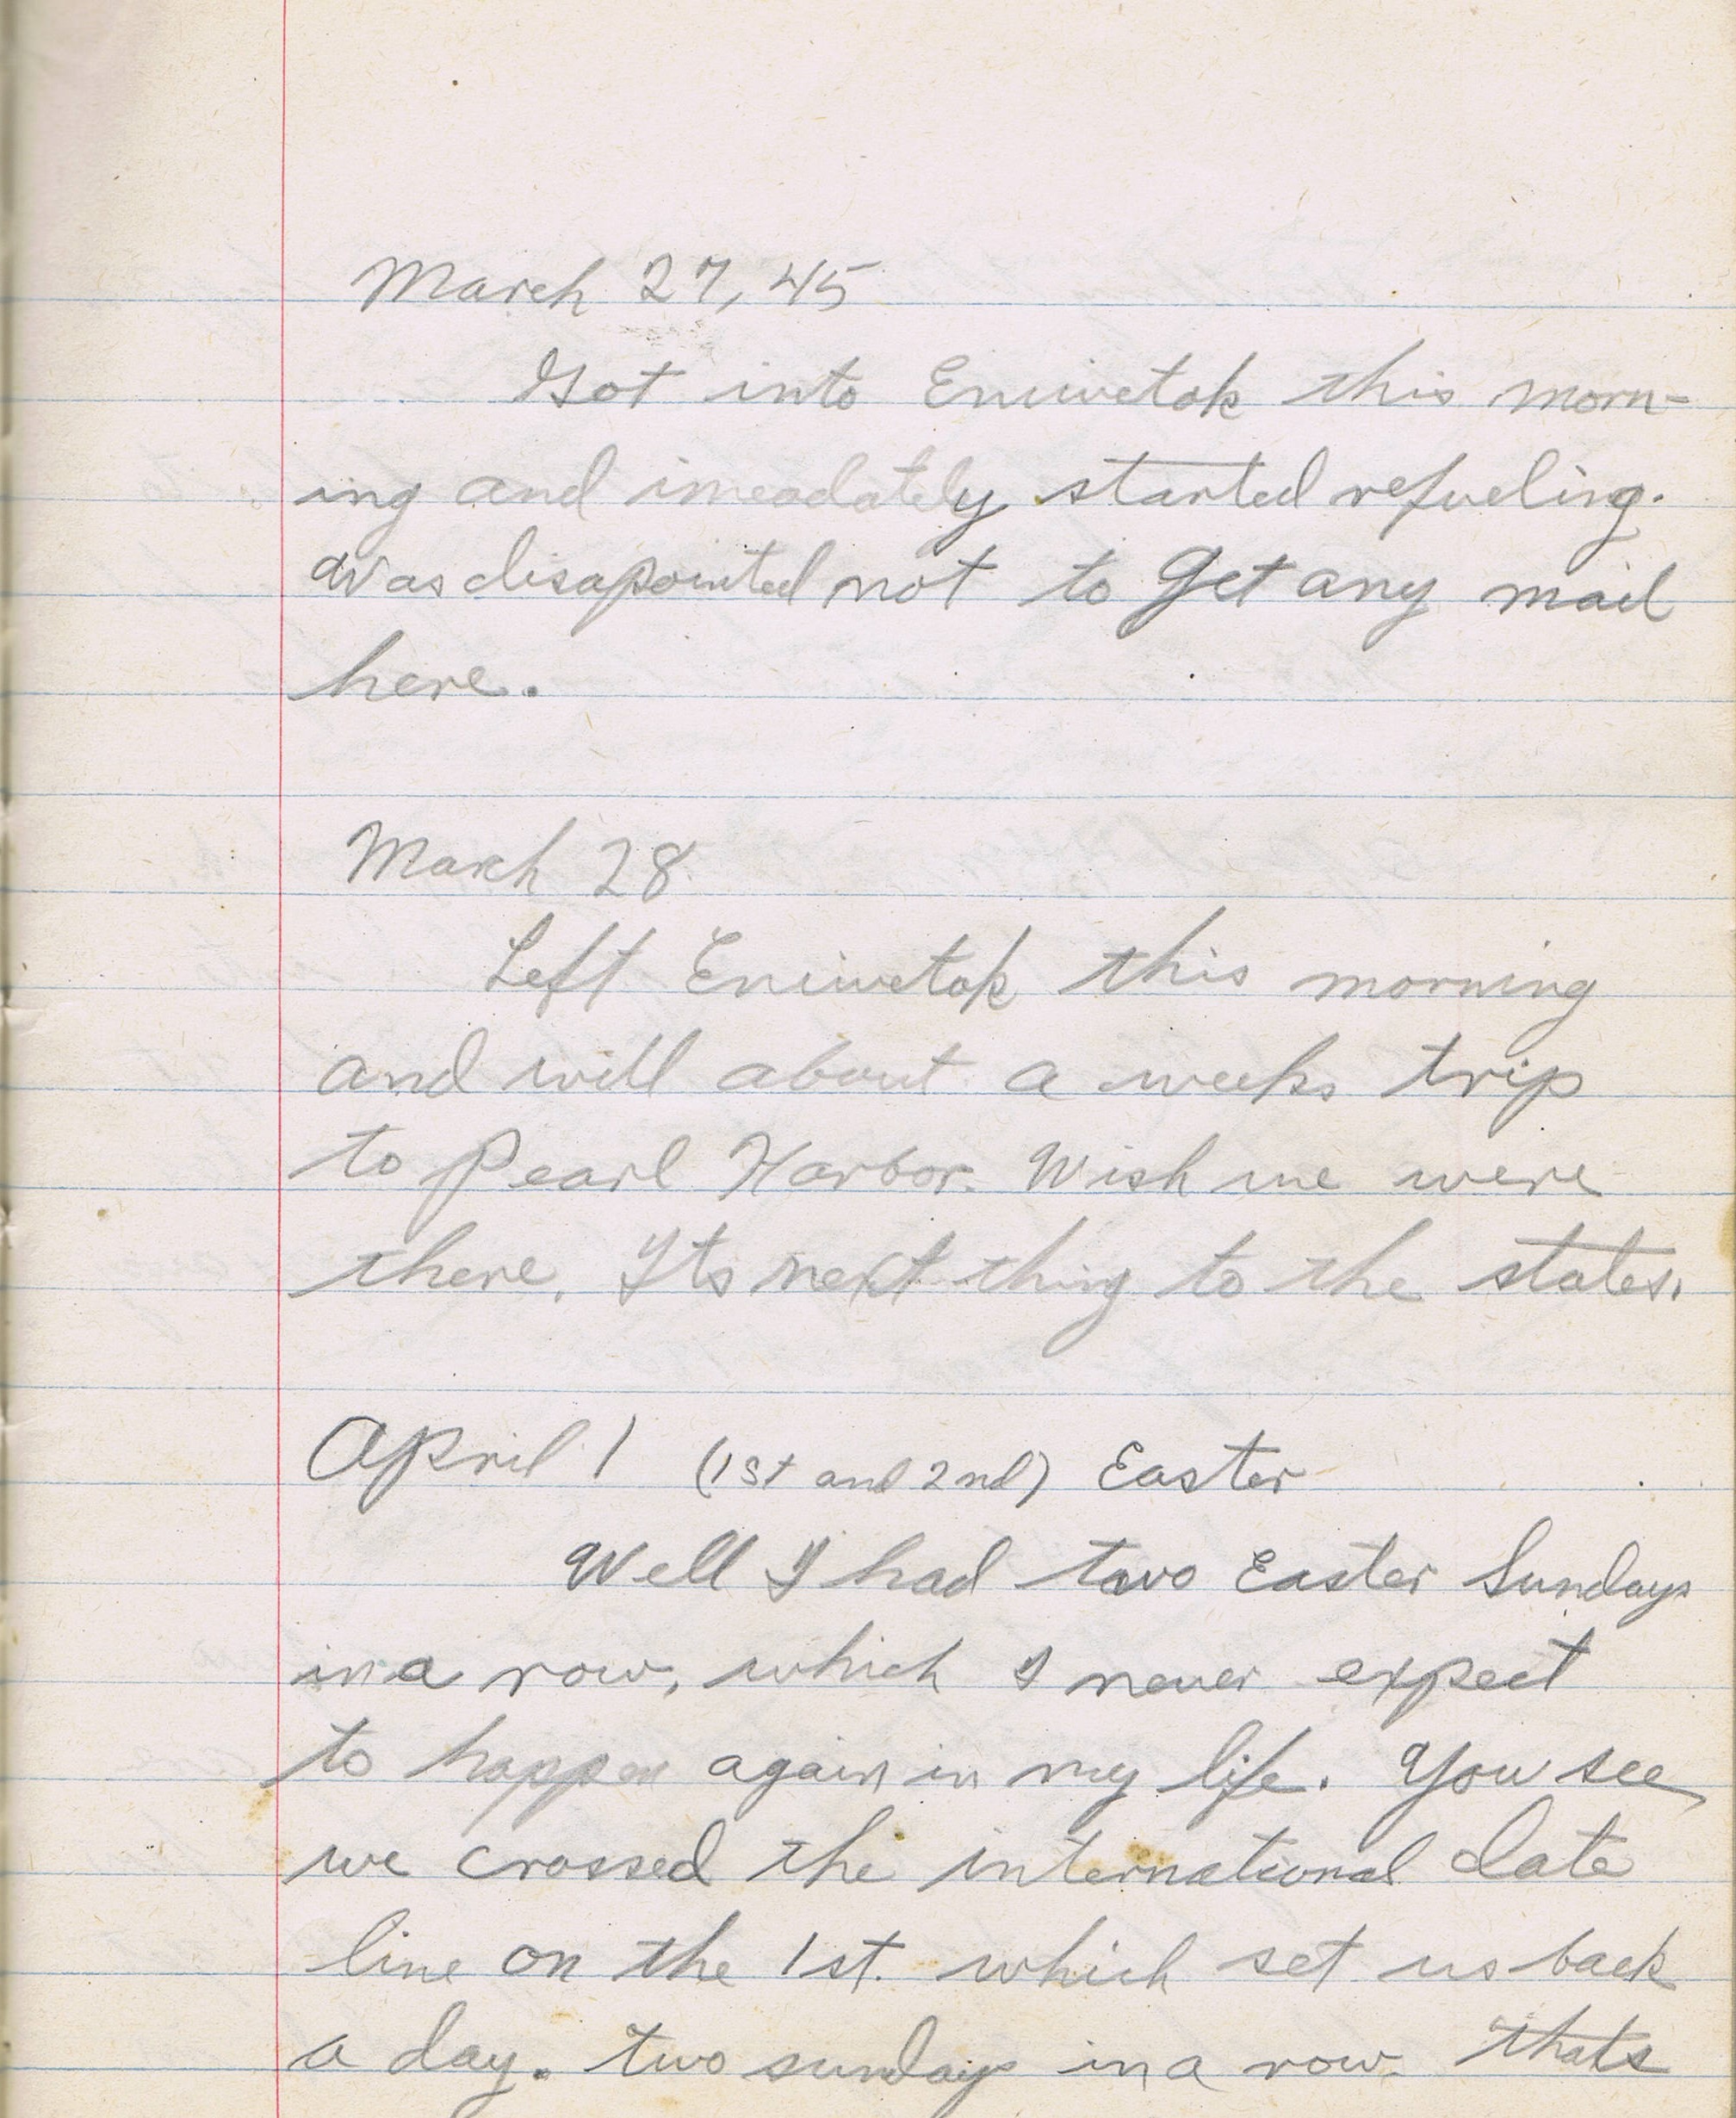 March 27, 45
Got into Eniwetok this morn-
ing and imeadately started refueling.
Was disapointed not to get any mail
here.
March 28
Left Eniwetok this morning
and will about a weeks trip
to Pearl Harbor. Wish we were
there. Its next thing to the states.
April 1 (1st and 2nd) Easter
Well I had two Easter Sundays
in a row, which I never expect
to happen again in my life. You see
we crossed the international date
line on the 1st. which set us back
a day. two sundays in a row. thats